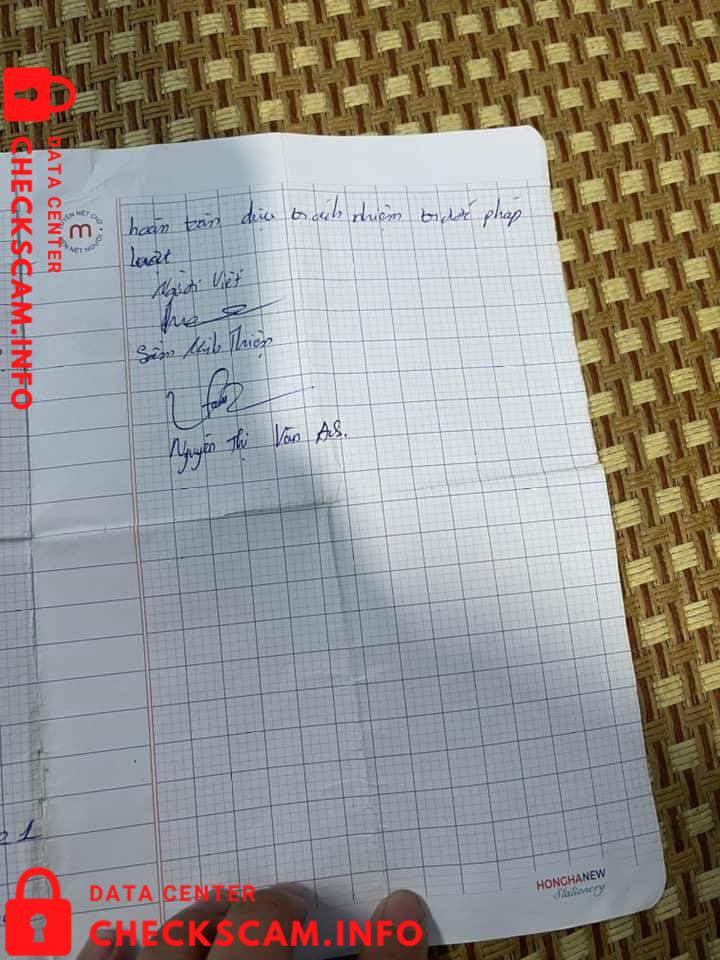 hoàn toàn chịu trách nhiệm trước pháp
luật
Người Viết
Sầm Minh Thiện
Nguyễn Thị Vân
HONGHANEW
Stationery
DATA CENTER
CHECKSCAM.INFO
DATA CENTER
CHECKSCAM.INFO